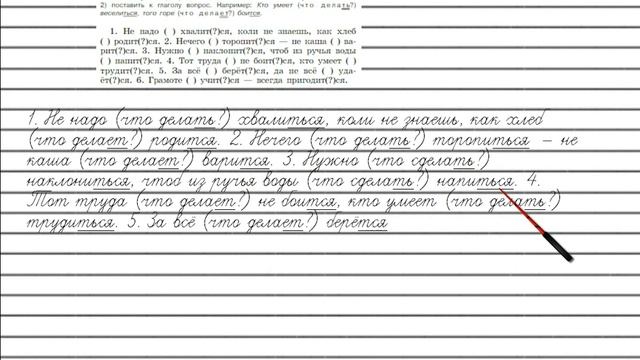 2) поставить к глаголу вопрос. Например: Кто умеет (что делать?)
веселиться, того горе (что делает?) боится.
1. Не надо ( ) хвалит(?)ся, коли не знаешь, как хлеб
( ) родит(?)ся. 2. Нечего ( ) торопит(?)ся — не каша ( ) ва-
рит(?)ся. 3. Нужно ( ) наклонит(?)ся, чтоб из ручья воды
( ) напит(?)ся. 4. Тот труда ( ) не боит(?)ся, кто умеет ( )
трудит(?)ся. 5. За всё ( ) берёт(?)ся, да не всё ( ) уда-
ёт(?)ся. 6. Грамоте ( ) учит(?)ся — всегда пригодит(?)ся.
1. Не надо (что делать?) хвалиться, коли не знаешь, как хлеб
(что делает?) родится. 2. Нечего (что делать?) торопиться – не
каша (что делает?) варится. 3. Нужно (что сделать?)
наклониться, чтоб из ручья воды (что сделать?) напиться. 4.
Тот труда (что делает?) не боится, кто умеет (что делать?)
трудиться. 5. За всё (что делает?) берётся